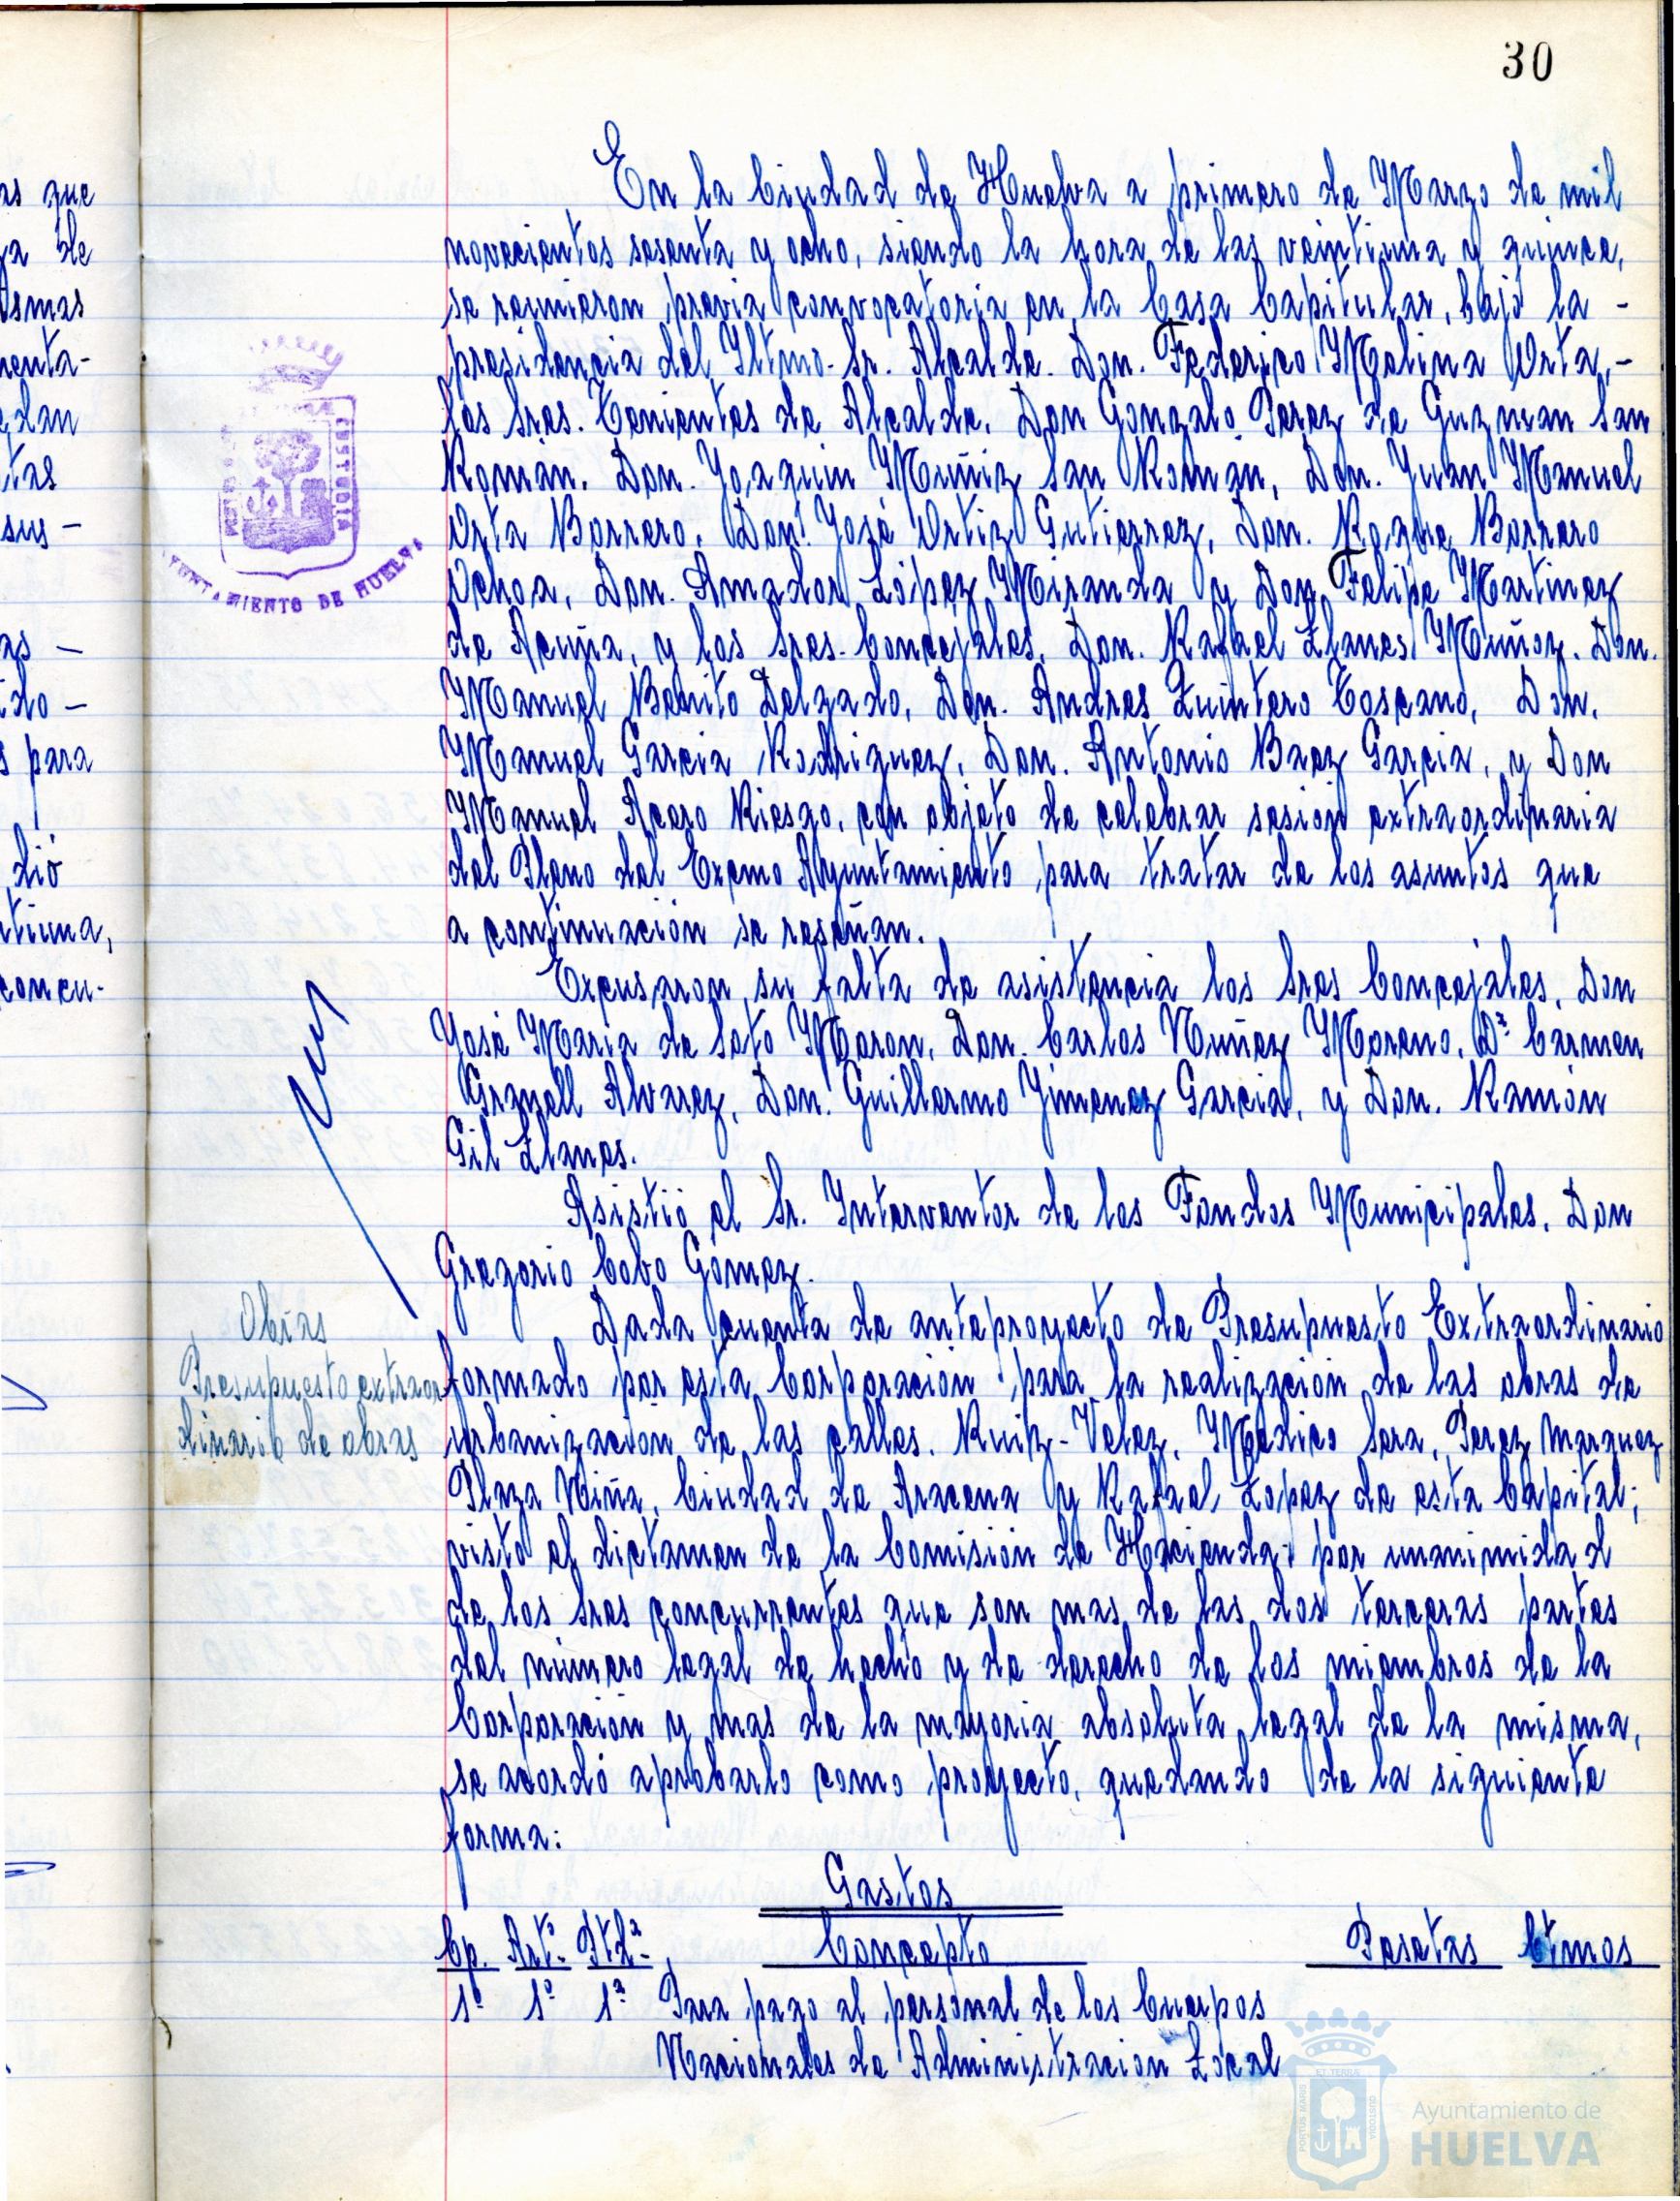 30
as que
ya de
ismas
menta-
edan
tas
sus -
as -
ido -
s para
dió
ntiuna,
concu-
AYUNTAMIENTO DE HUELVA
En la Ciudad de Huelva a primero de Marzo de mil
novecientos sesenta y ocho, siendo la hora de las veintiuna y quince,
se reunieron previa convocatoria en la Casa Capitular, bajo la -
presidencia del Iltmo. Sr. Alcalde. Don. Federico Molina Orta, -
los Sres. Tenientes de Alcalde, Don Gonzalo Perez de Guzman San
Roman, Don. Joaquin Muñiz San Roman, Don. Juan Manuel
Orta Borrero, Don. José Ortiz Gutierrez, Don. Roque Borrero
Ochoa, Don. Amador López Miranda y Don Felipe Martinez
de Acuña, y los Sres. Concejales, Don. Rafael Llanes Muñoz. Don.
Manuel Benito Delgado, Don. Andres Quintero Toscano, Don.
Manuel Garcia Rodriguez, Don. Antonio Baez Garcia, y Don
Manuel Acero Riesgo, con objeto de celebrar sesión extraordinaria
del Pleno del Excmo Ayuntamiento para tratar de los asuntos que
a continuación se reseñan.
Excusaron su falta de asistencia los Sres Concejales, Don
José Maria de Soto Moron, Don. Carlos Nuñez Moreno, Dª Cármen
Granell Alvarez, Don. Guillermo Jimenez Garcia, y Don. Ramón
Gil Llanes.
Asistió el Sr. Interventor de los Fondos Municipales, Don
Gregorio Cobo Gómez.
Obras
Presupuesto extraor
dinario de obras
Dada cuenta de anteproyecto de Presupuesto Extraordinario
formado por esta Corporación para la realización de las obras de
urbanización de las calles. Ruiz-Velez, Medico Sera, Perez Marquez
Plaza Niña, Ciudad de Aracena y Rafael Lopez de esta Capital;
visto el dictamen de la Comisión de Hacienda; por unanimidad
de los Sres concurrentes que son mas de las dos terceras partes
del número legal de hecho y de derecho de los miembros de la
Corporación y mas de la mayoria absoluta legal de la misma,
se acordó aprobarlo como proyecto, quedando de la siguiente
forma:
Gastos
Cp. Artº. Ptdª. Concepto Pesetas Ctmos
1º 1º 1ª Para pago al personal de los Cuerpos
Nacionales de Administracion Local
Ayuntamiento de
HUELVA